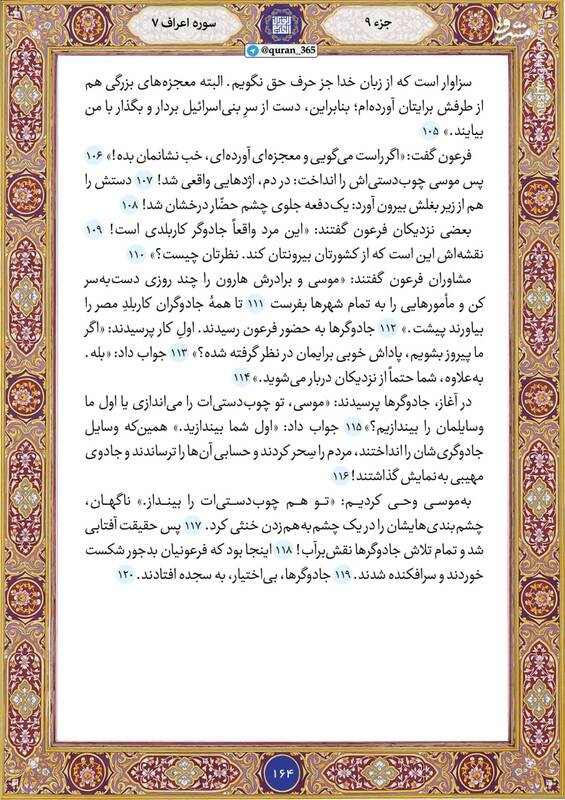 جزء ۹
سوره اعراف ۷
@quran_365
سزاوار است که از زبان خدا جز حرف حق نگویم. البته معجزه‌های بزرگی هم
از طرفش برایتان آورده‌ام؛ بنابراین، دست از سرِ بنی‌اسرائیل بردار و بگذار با من
بیایند.» ۱۰۵
فرعون گفت: «اگر راست می‌گویی و معجزه‌ای آورده‌ای، خب نشانمان بده!» ۱۰۶
پس موسی چوب‌دستی‌اش را انداخت: در دم، اژدهایی واقعی شد! ۱۰۷ دستش را
هم از زیر بغلش بیرون آورد: یک‌دفعه جلوی چشم حضّار درخشان شد! ۱۰۸
بعضی نزدیکان فرعون گفتند: «این مرد واقعاً جادوگر کاربلدی است! ۱۰۹
نقشه‌اش این است که از کشورتان بیرونتان کند. نظرتان چیست؟» ۱۱۰
مشاوران فرعون گفتند: «موسی و برادرش هارون را چند روزی دست‌به‌سر
کن و مأمورهایی را به تمام شهرها بفرست ۱۱۱ تا همهٔ جادوگران کاربلدِ مصر را
بیاورند پیشت.» ۱۱۲ جادوگرها به حضور فرعون رسیدند. اولِ کار پرسیدند: «اگر
ما پیروز بشویم، پاداش خوبی برایمان در نظر گرفته شده؟» ۱۱۳ جواب داد: «بله.
به‌علاوه، شما حتماً از نزدیکان دربار می‌شوید.» ۱۱۴
در آغاز، جادوگرها پرسیدند: «موسی، تو چوب‌دستی‌ات را می‌اندازی یا اول ما
وسایلمان را بیندازیم؟» ۱۱۵ جواب داد: «اول شما بیندازید.» همین‌که وسایل
جادوگری‌شان را انداختند، مردم را سِحر کردند و حسابی آن‌ها را ترساندند و جادوی
مهیبی به‌نمایش گذاشتند! ۱۱۶
به‌موسی وحی کردیم: «تو هم چوب‌دستی‌ات را بینداز.» ناگهان،
چشم‌بندی‌هایشان را در یک چشم‌به‌هم‌زدن خنثی کرد. ۱۱۷ پس حقیقت آفتابی
شد و تمام تلاش جادوگرها نقش‌برآب! ۱۱۸ اینجا بود که فرعونیان بدجور شکست
خوردند و سرافکنده شدند. ۱۱۹ جادوگرها، بی‌اختیار، به سجده افتادند. ۱۲۰
۱۶۴